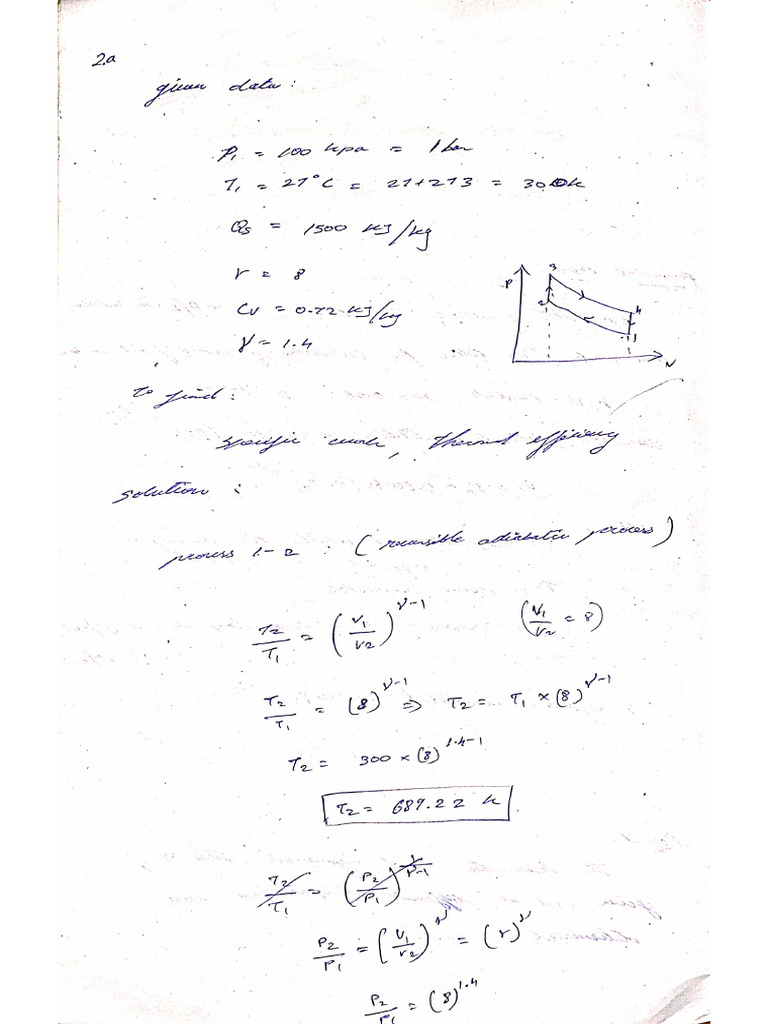 2.a
given data :
P₁ = 100 kpa = 1 bar
T₁ = 27°C = 27+273 = 300k
Qs = 1500 KJ/kg
r = 8
Cv = 0.72 KJ/kg
γ = 1.4
P 3 2 4 1 V
to find :
specific work, thermal efficiency
solution :
process 1-2 : (reversible adiabatic process)
T2/T1 = (V1/V2)^γ-1 (V1/V2 = 8)
T2/T1 = (8)^γ-1 ⇒ T2 = T1 × (8)^γ-1
T2 = 300 × (8)^1.4-1
T2 = 689.22 k
P2/P1 = (V1/V2)^γ = (r)^γ
P2/P1 = (8)^1.4